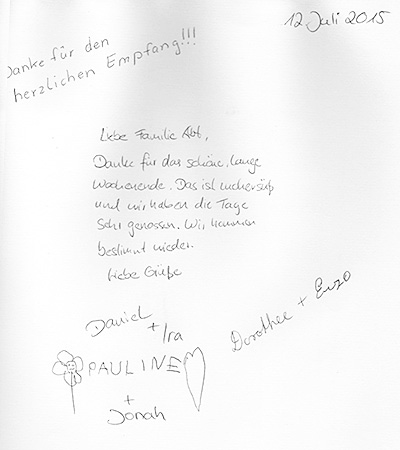 12. Juli 2015
Danke für den
herzlichen Empfang!!!
Liebe Familie Abt,
Danke für das schöne, lange
Wochenende. Das ist zuckersüß
und wir haben die Tage
sehr genossen. Wir kommen
bestimmt wieder.
Liebe Grüße
Daniel
+ Ira
Dorothee + Enzo
PAULINE
+
Jonah